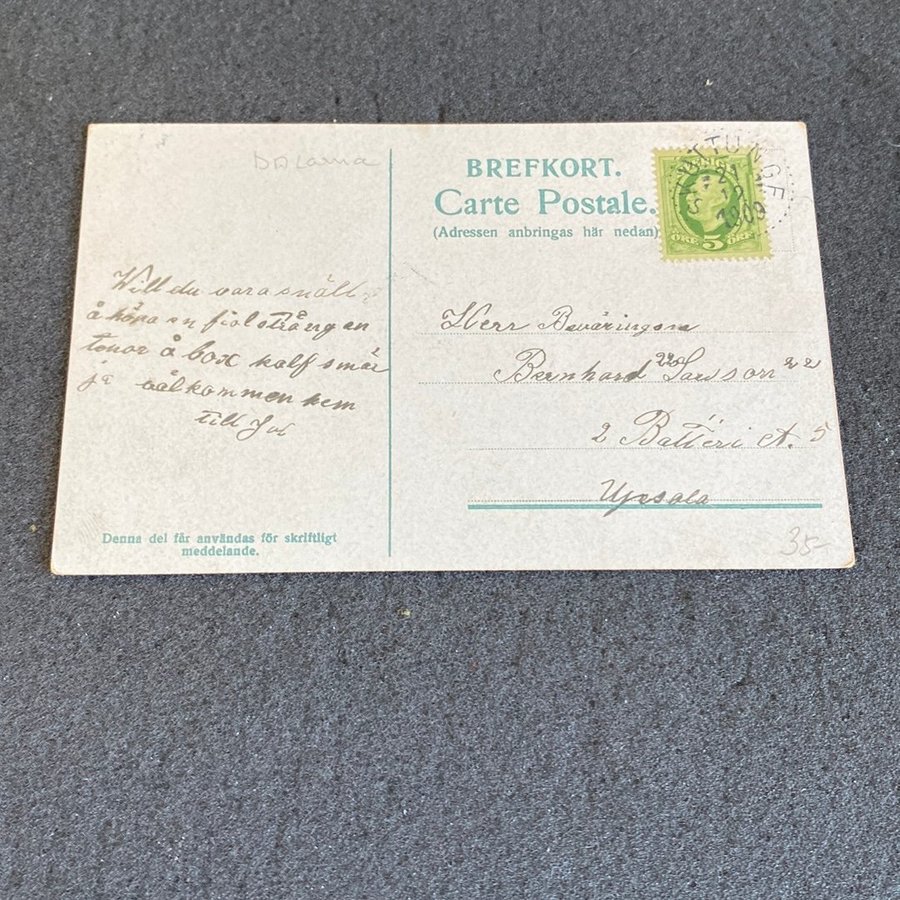 DALarna
BREFKORT.
Carte Postale.
(Adressen anbringas här nedan)
SVERIGE
ÖRE 5 ÖRE
1909
Will du vara snäll
å köpa en fiolsträng en
tenor å box half smär
ja välkommen hem
till Jul
Herr Beväringen
Bernhard 22 Larsson 22
2 Batteri A. 5
Upsala
Denna del får användas för skriftligt
meddelande.
35-